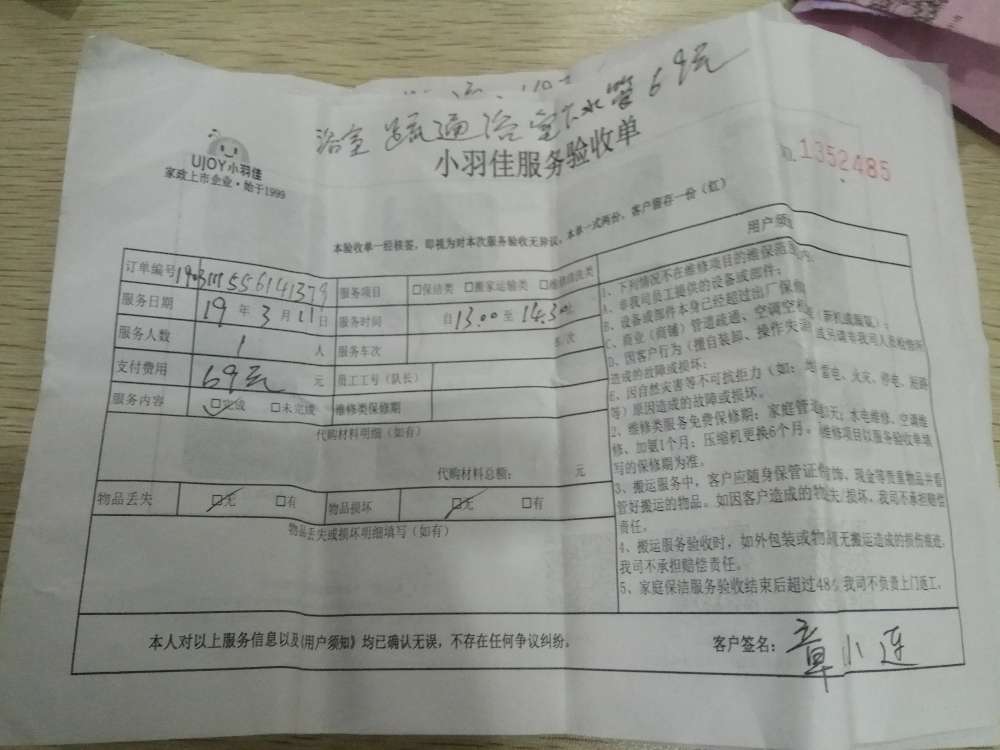 浴室 疏通浴室下水管69元
UJOY小羽佳
家政上市企业·始于1999
小羽佳服务验收单
1352485
本验收单一经核签，即视为对本次服务验收无异议，本单一式两份，客户留存一份（红）
订单编号
服务项目 □保洁类 □搬家运输类 □维修清洗类
服务日期 19年3月11日 服务时间 自13:00至14:30
服务人数 1人 服务车次 车/次
支付费用 69元 元 员工工号（队长）
服务内容 □完成 □未完成 维修类保修期
代购材料明细（如有）
代购材料总额： 元
物品丢失 □无 □有 物品损坏 □无 □有
物品丢失或损坏明细填写（如有）
用户须
1、下列情况不在维修项目的维保范
A、非我司员工提供的设备或部件；
B、设备或部件本身已经超过出厂保修
C、商业（商铺）管道疏通、空调空机
D、因客户行为（擅自装卸、操作失
造成的故障或损坏；
E、因自然灾害等不可抗拒力（如：地 雷电、火灾、停电、短路
等）原因造成的故障或损坏。
2、维修类服务免费保修期：家庭管道 水电维修、空调维
修、加氨1个月；压缩机更换6个月。维修项目以服务验收单填
写的保修期为准。
3、搬运服务中，客户应随身保管证 首饰、现金等贵重物品并看
管好搬运的物品。如因客户造成的物 损坏，我司不承担赔偿
责任。
4、搬运服务验收时，如外包装或物 无搬运造成的损伤痕迹，
我司不承担赔偿责任。
5、家庭保洁服务验收结束后超过48 我司不负责上门返工。
本人对以上服务信息以及《用户须知》均已确认无误，不存在任何争议纠纷。 客户签名：章小连